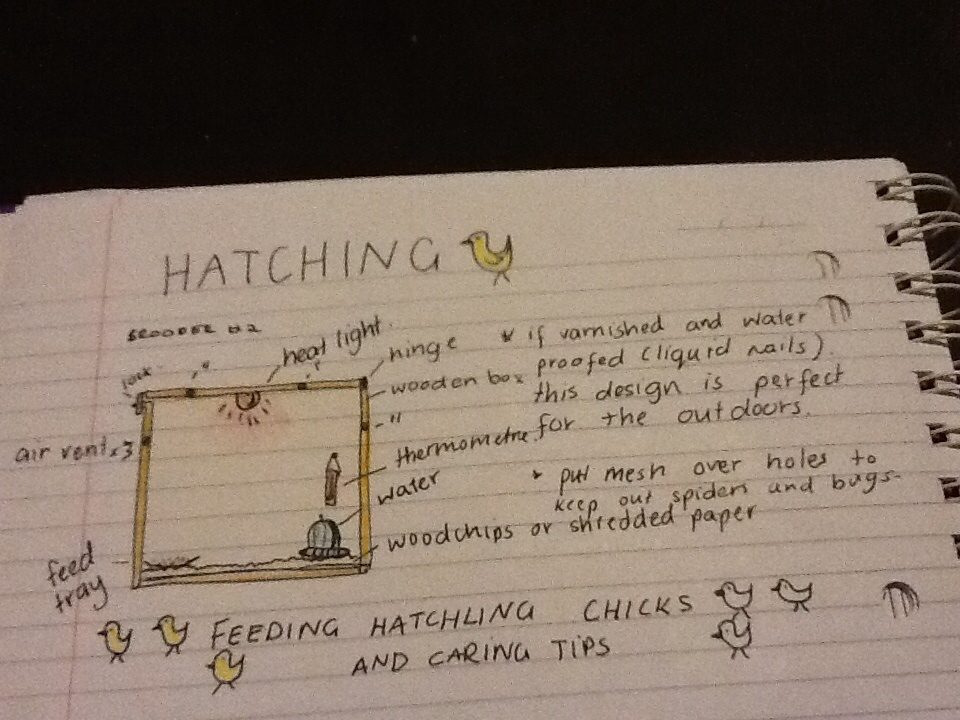 HATCHING
BROODER no 2
lock
"
heat light.
"
hinge
* if varnished and water
wooden box
proofed (liquid nails).
"
this design is perfect
for the outdoors.
air vent x3
thermometre
water
* put mesh over holes to
keep out spiders and bugs-
woodchips or shredded paper
feed
tray
FEEDING HATCHLING CHICKS
AND CARING TIPS